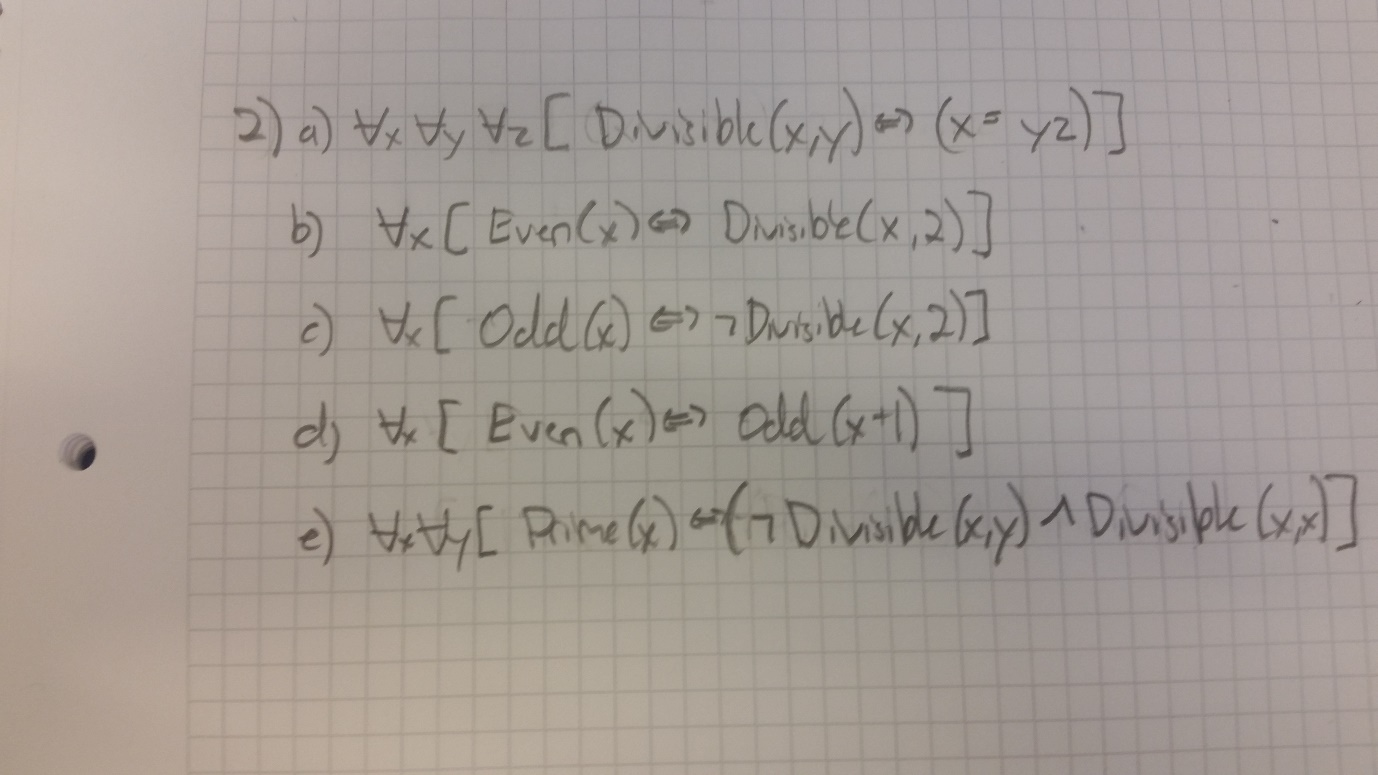 2) a) ∀x ∀y ∀z [ Divisible(x,y) ⇔ (x = yz)]
b) ∀x [ Even(x) ⇔ Divisible(x,2)]
c) ∀x [ Odd(x) ⇔ ¬Divisible(x,2)]
d) ∀x [ Even(x) ⇔ Odd(x+1) ]
e) ∀x∀y [ Prime(x) ⇔ (¬Divisible(x,y) ∧ Divisible(x,x)]